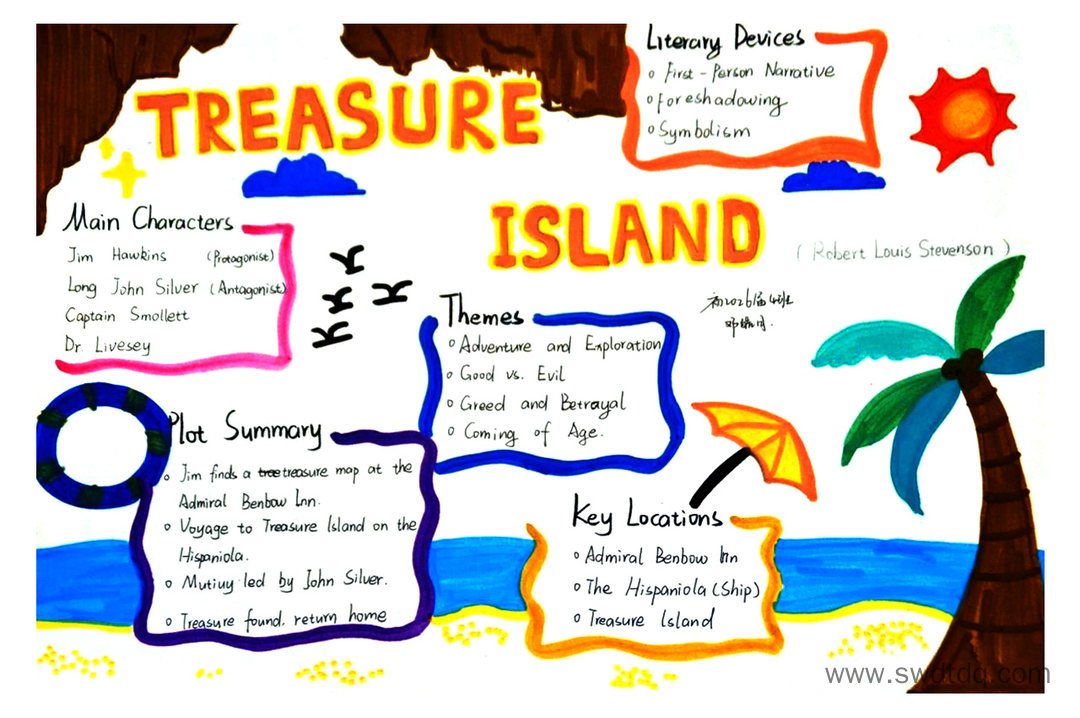 TREASURE
ISLAND
( Robert Louis Stevenson )
初2026届4班
Literary Devices
First-Person Narrative
Foreshadowing
Symbolism
Main Characters
Jim Hawkins (Protagonist)
Long John Silver (Antagonist)
Captain Smollett
Dr. Livesey
Themes
Adventure and Exploration
Good vs. Evil
Greed and Betrayal
Coming of Age.
Plot Summary
Jim finds a tree treasure map at the
Admiral Benbow Inn.
Voyage to Treasure Island on the
Hispaniola.
Mutiuy led by John Silver.
Treasure found. return home
Key Locations
Admiral Benbow Inn
The Hispaniola (Ship)
Treasure Island
www.swdtdq.com